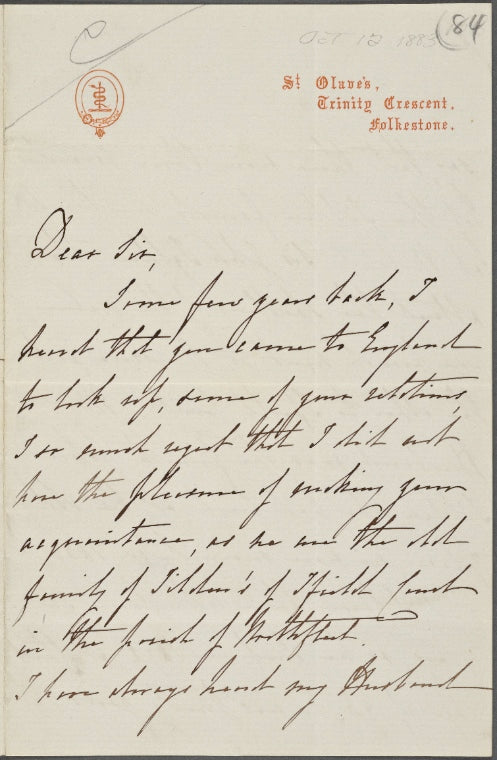 84
OCT 12 1883
St Olave's,
Trinity Crescent,
Folkestone.
Dear Sir,
Some few years back, I
heard that you came to England
to look up, some of your relations,
I so much regret that I did not
have the pleasure of making your
acquaintance, as we are the old
family of Tilden's of Ifield Court
in the parish of Northfleet.
I have always heard my Husband